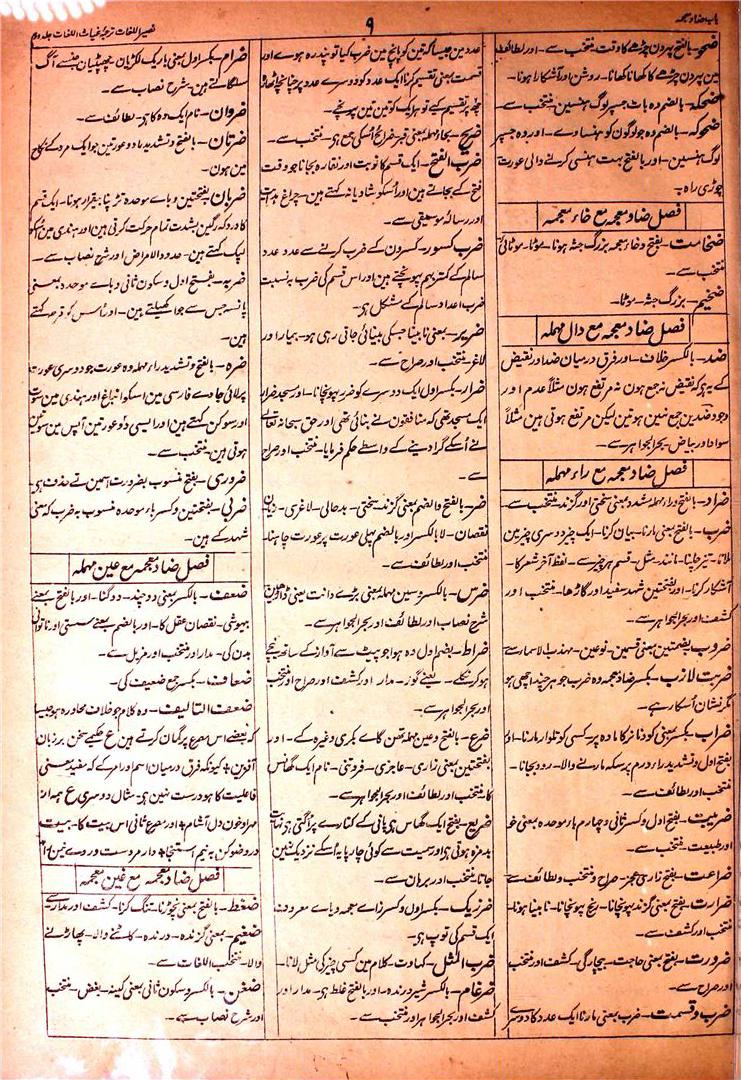 باب ضاد معجمہ
۹
نصیر اللغات ترجمۂ غیاث اللغات جلد دوم
ضحو۔ بالفتح پہردن چڑھے کا وقت منتخب سے۔ اور لطائف
مین پہردن چڑھے کا کھانا کھانا۔ روشن اور آشکارا ہونا۔
ضحکہ۔ بالضم وہ بات جسپر لوگ ہنسین۔ منتخب سے
ضحوکہ۔ بالضم وہ جو لوگون کو ہنسا دے۔ اور وہ جسپر
لوگ ہنسین۔ اور بالفتح بہت ہنسی کرنے والی عورت
چوڑی راہ
فصل ضاد معجمہ مع خاء معجمہ
ضخامت۔ بفتح وخاء معجمہ بزرگ جثہ ہونا۔ موٹا۔ موٹائی
منتخب سے۔
ضخیم۔ بزرگ جثہ۔ موٹا۔
فصل ضاد معجمہ مع دال مہملہ
ضد۔ بالکسر خلاف۔ اور فرق درمیان ضد اور نقیض
کے یہ ہے کہ نقیض نہ جمع ہون نہ مرتفع ہون مثلاً عدم اور
وجود ضدین جمع نہین ہوتین لیکن مرتفع ہوتی ہین مثلاً
سواد اور بیاض۔ بحر الجواہر سے۔
فصل ضاد معجمہ مع راء مہملہ
ضراد۔ بالفتح وراء مہملہ مشدد بمعنی سختی اور گزند منتخب سے۔
ضرب۔ بالفتح بمعنی مارنا۔ بیان کرنا۔ ایک چیز دوسری چیز مین
ملانا۔ تیز چلنا۔ مانند۔ مثل۔ قسم ہر چیز سے۔ لفظ آخر شعر کا۔
آشکار کرنا۔ اور بفتحتین شہد سفید اور گاڑھا۔ منتخب اور
کشف اور بحر الجواہر سے۔
ضروب بضمتین بمعنی قسمین۔ نوعین۔ مہذب الاسما سے
ضربت لازب۔ بکسر ضاد معجمہ وہ ضرب جو ہر چند اچھی ہو
مگر نشان اُسکا رہے۔
ضراب۔ بکسر بمعنی کودنا نر کا مادہ پر۔ کسی کو تلوار مارنا۔ اور
بفتح اول وتشدید راء درم پر سکہ مارنے والا۔ رود بجانا۔
منتخب اور لطائف سے۔
ضریبت۔ بفتح اول وکسر ثانی وچہارم باء موحدہ بمعنی خو
اور طبیعت۔ منتخب سے۔
ضراعت۔ بفتح زاری وعجز۔ صراح ومنتخب ولطائف سے
ضرارت۔ بفتح بمعنی گزند پہونچانا۔ رنج پہونچانا۔ نابینا ہونا۔
منتخب اور کشف سے۔
ضرورت۔ بفتح بمعنی حاجت۔ بیچارگی۔ کشف اور منتخب
اور صراح سے۔
ضرب وقسمت۔ ضرب بمعنی مارنا ایک عدد کا دوسرے
عدد مین جیسا کہ تین کو پانچ مین ضرب کیا تو پندرہ ہوے اور
قسمت بمعنی تقسیم کرنا ایک عدد کو دوسرے عدد پر چنانچہ اٹھارہ
چھ پر تقسیم کیے تو ہر ایک کو تین تین پہونچے۔
ضریح۔ بحاء مہملہ بمعنی قبر ضرائح اُسکی جمع ہی۔ منتخب سے۔
ضرب الفتح۔ ایک قسم کا نوبت اور نقارہ بجانا جو وقت
فتح کے بجاتے ہین اور اُسکو شادیانہ کہتے ہین۔ چراغ ہدایت
اور رسالہ موسیقی سے۔
ضرب کسور۔ کسرون کے ضرب کرنے سے عدد عدد
سالم کے کمتر بہم پہونچتے ہین اور اس قسم کی ضرب بہ نسبت
ضرب اعداد سالم کے مشکل ہی۔
ضریر۔ بمعنی نابینا جسکی بینائی جاتی رہی ہو۔ بیمار اور
لاغر۔ منتخب اور صراح سے۔
ضرار۔ بکسر اول ایک دوسرے کو ضرر پہونچانا۔ اور مسجد ضرار
ایک مسجد تھی کہ منافقون نے بنائی تھی اور حق سبحانہ تعالیٰ
نے اُسکے گرا دینے کے واسطے حکم فرمایا۔ منتخب اور صراح
سے۔
ضر۔ بالفتح والضم بمعنی گزند سختی۔ بدحالی۔ لاغری۔ زیان
نقصان۔ لا بالکسر اور بالضم پہلی عورت پر عورت چاہنا۔
منتخب اور لطائف سے۔
ضرس۔ بالکسر وسین مہملہ بمعنی بڑے دانت یعنی ڈاڑھین
شرح نصاب اور لطائف اور بحر الجواہر سے۔
ضراط۔ بضم اول وہ ہوا جو پیٹ سے آواز کے ساتھ نیچے
ہو کر نکلے۔ یعنے گوز۔ مدار اور کشف اور صراح اور منتخب
اور بحر الجواہر سے۔
ضرع۔ بالفتح وعین مہملہ تھن گاے بکری وغیرہ کے۔ اور
بفتحتین بمعنی زاری۔ عاجزی۔ فروتنی۔ نام ایک گھانس
کا۔ منتخب اور لطائف اور بحر الجواہر سے۔
ضریع۔ بفتح ایک گھاس ہی پانی کے کنارے پر اُگتی ہی نہایت
بدمزہ ہوتی ہی اور سمیت سے کوئی چارپایہ اسکے نزدیک نہین
جاتا۔ منتخب اور برہان سے۔
ضرزیک۔ بکسر اول وکسر زاے معجمہ ویاے معروف
ایک قسم کی توپ ہی۔
ضرب المثل۔ کہاوت۔ کلام مین کسی چیز کی مثل لانا۔
ضرغام۔ بالکسر شیر درندہ۔ اور بالفتح غلط ہی۔ مدار اور
کشف اور بحر الجواہر اور منتخب سے۔
ضرام۔ بکسر اول بمعنی باریک لکڑیان چھپٹیان جنسے آگ
سلگاتے ہین۔ شرح نصاب سے۔
ضروان۔ نام ایک وہ کا ہی۔ لطائف سے۔
ضرتان۔ بالفتح وتشدید راء دو عورتین جو ایک مرد کے نکاح
مین ہون۔
ضربان۔ بفتحتین وباے موحدہ تڑپنا۔ بیقرار ہونا۔ ایک قسم
کا درد کہ رگین بشدت تمام حرکت کرتی ہین اور ہندی مین اُسکو
لپک کہتے ہین۔ حدود الامراض اور شرح نصاب سے۔
ضربہ۔ بفتح اول وسکون ثانی وباے موحدہ بمعنی
پانسہ جس سے جوا کھیلتے ہین۔ اور اُسکو قرعہ کہتے
ہین۔
ضرہ۔ بالفتح وتشدید راء مہملہ وہ عورت جو دوسری عورت
پر لائی جاوے فارسی مین اسکو انباغ اور ہندی مین سوت
اور سوکن کہتے ہین اور ایسی دو عورتین آپس مین سوتین
ہوتی ہین۔ منتخب سے۔
ضروری۔ بفتح منسوب بضرورت اسمین تے حذف ہی۔
ضربی۔ بفتحتین وکسر باء موحدہ منسوب بہ ضرب کہ بمعنی
شہد کے ہین۔
فصل ضاد معجمہ مع عین مہملہ
ضعف۔ بالکسر بمعنی دو چند۔ دوگنا۔ اور بالفتح بمعنے
بیہوشی۔ نقصان عقل کا۔ اور بالضم بمعنے سستی اور ناتوانی
بدن کی۔ مدار اور منتخب اور مزیل سے۔
ضعاف۔ بکسر جمع ضعیف کی۔
ضعف التالیف۔ وہ کلام جو خلاف محاورہ ہو جیسا
کہ بعضے اس مصرع پر گمان کرتے ہین ع حکیمے سخن بر زبان
آفرین ؛ کیونکہ فرق درمیان اسم اور امر کے کہ مفید معنی
فاعلیت کا ہو درست نہین ہی۔ مثال دوسری ع ہمہ از
مہر او خون دل آشام ؛ اور مصرع ثانی اس بیت کا۔ بیت
در وضو کن بہ نیم استنجا ؛ دار مروست
فصل ضاد معجمہ مع غین معجمہ
ضغط۔ بالفتح بمعنی نچوڑنا۔ تنگ کرنا۔ کشف اور مدار سے
ضغیم۔ بمعنی گزندہ۔ درندہ۔ کاٹنے والا۔ پھاڑنے
والا۔ منتخب اللغات سے۔
ضغن۔ بالکسر وسکون ثانی بمعنی کینہ۔ بغض۔ منتخب
اور شرح نصاب سے۔